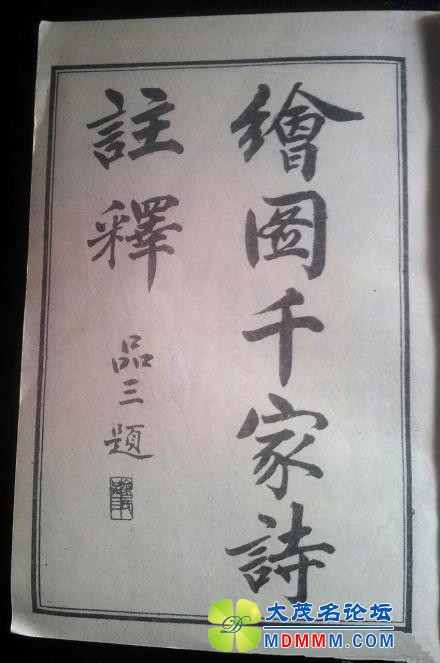 繪圖千家詩
註釋
品三題
大茂名论坛
MDMMM.COM